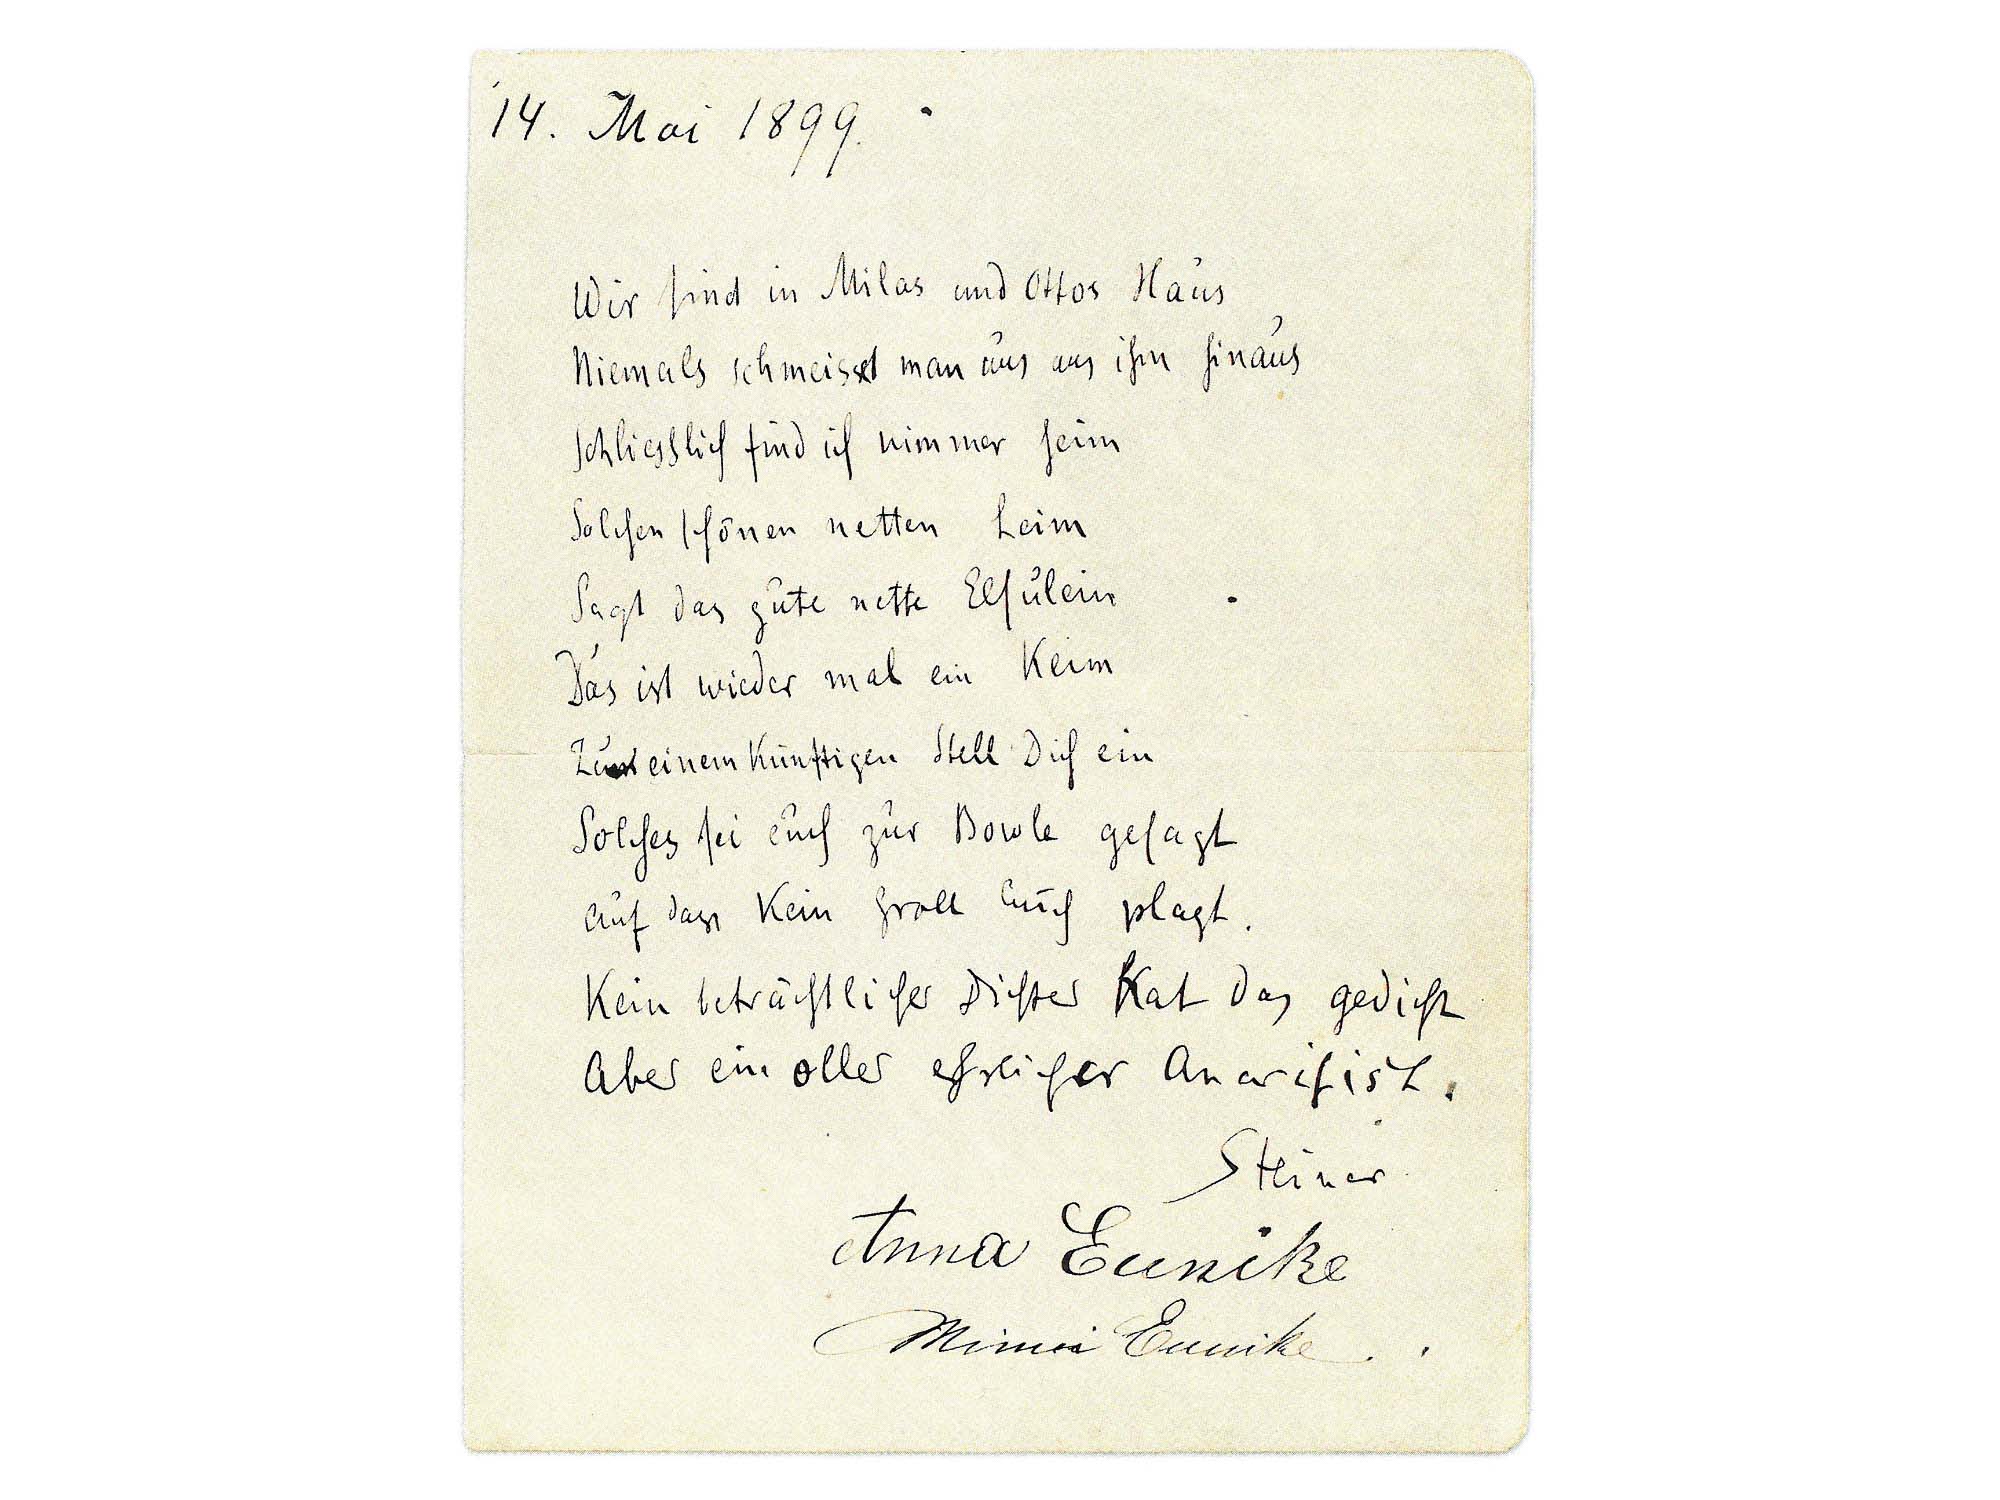 14. Mai 1899.
Wir sind in Milas und Ottos Haus
Niemals schmeisst man uns aus ihm hinaus
schliesslich find ich nimmer heim
Solchen schönen netten Leim
Sagt das gute nette Elsulein
Das ist wieder mal ein Keim
Zu einem Künftigen Stell Dich ein
Solches sei euch zur Bowle gesagt
auf dass Kein Groll Euch plagt.
Kein beträchtlicher Dichter hat das gedicht
Aber ein oller ehrlicher Anarchist.
Steiner
Anna Eunike
Mimi Eunike.